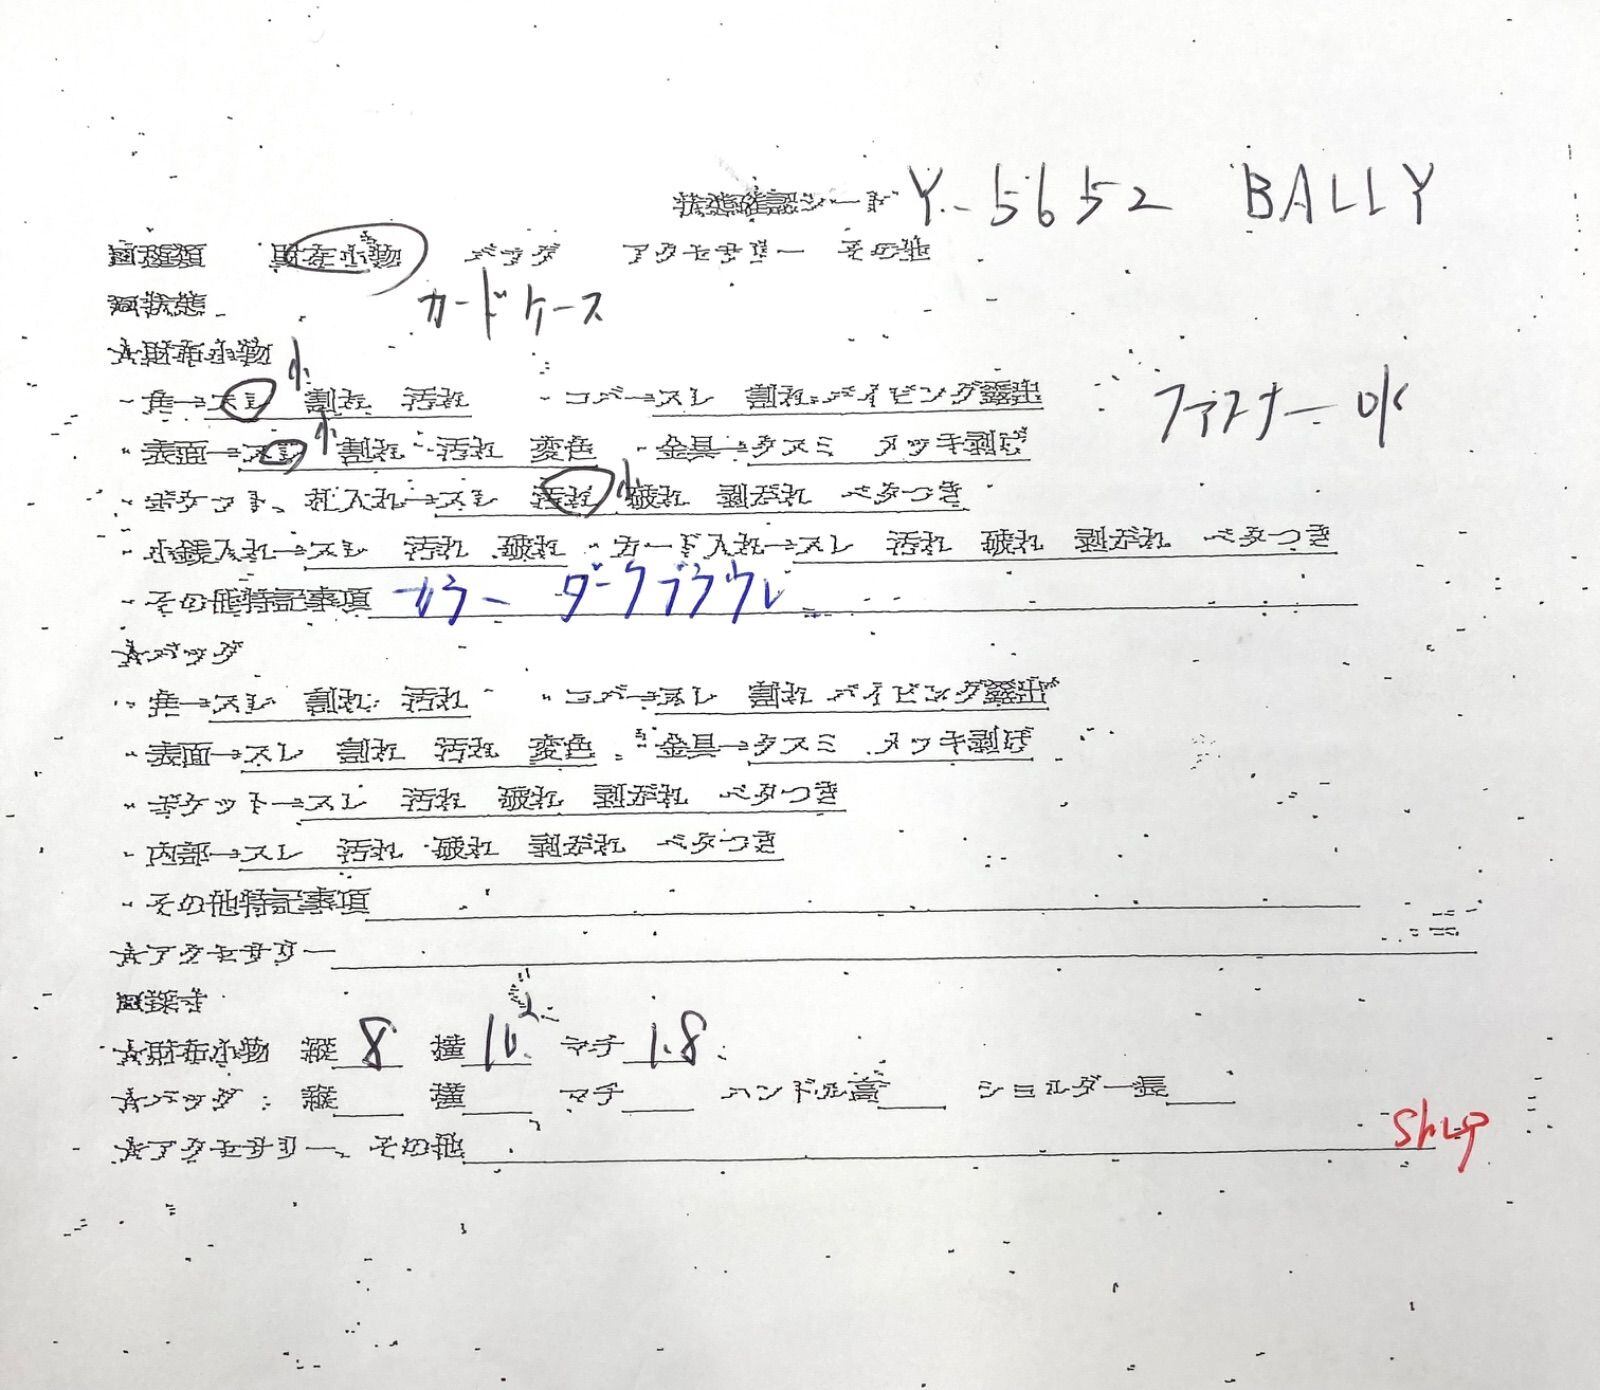 状態確認シート Y-5652 BALLY
□種類 財布小物 バッグ アクセサリー その他
□状態 カードケース
☆財布小物
・角→スレ 小 割れ 汚れ ・コバ→スレ 割れ パイピング露出 ファスナー OK
・表面→スレ 小 割れ 汚れ 変色 ・金具→クスミ メッキ剥げ
・ポケット、札入れ→スレ 汚れ 小 破れ 剥がれ ベタつき
・小銭入れ→スレ 汚れ 破れ ・カード入れ→スレ 汚れ 破れ 剥がれ ベタつき
・その他特記事項 カラー ダークブラウン
☆バッグ
・角→スレ 割れ 汚れ ・コバ→スレ 割れ パイピング露出
・表面→スレ 割れ 汚れ 変色 ・金具→クスミ メッキ剥げ
・ポケット→スレ 汚れ 破れ 剥がれ ベタつき
・内部→スレ 汚れ 破れ 剥がれ ベタつき
・その他特記事項
☆アクセサリー
□採寸
☆財布小物 縦 8 横 10. マチ 1.8
☆バッグ 縦 横 マチ ハンドル高 ショルダー長
☆アクセサリー、その他